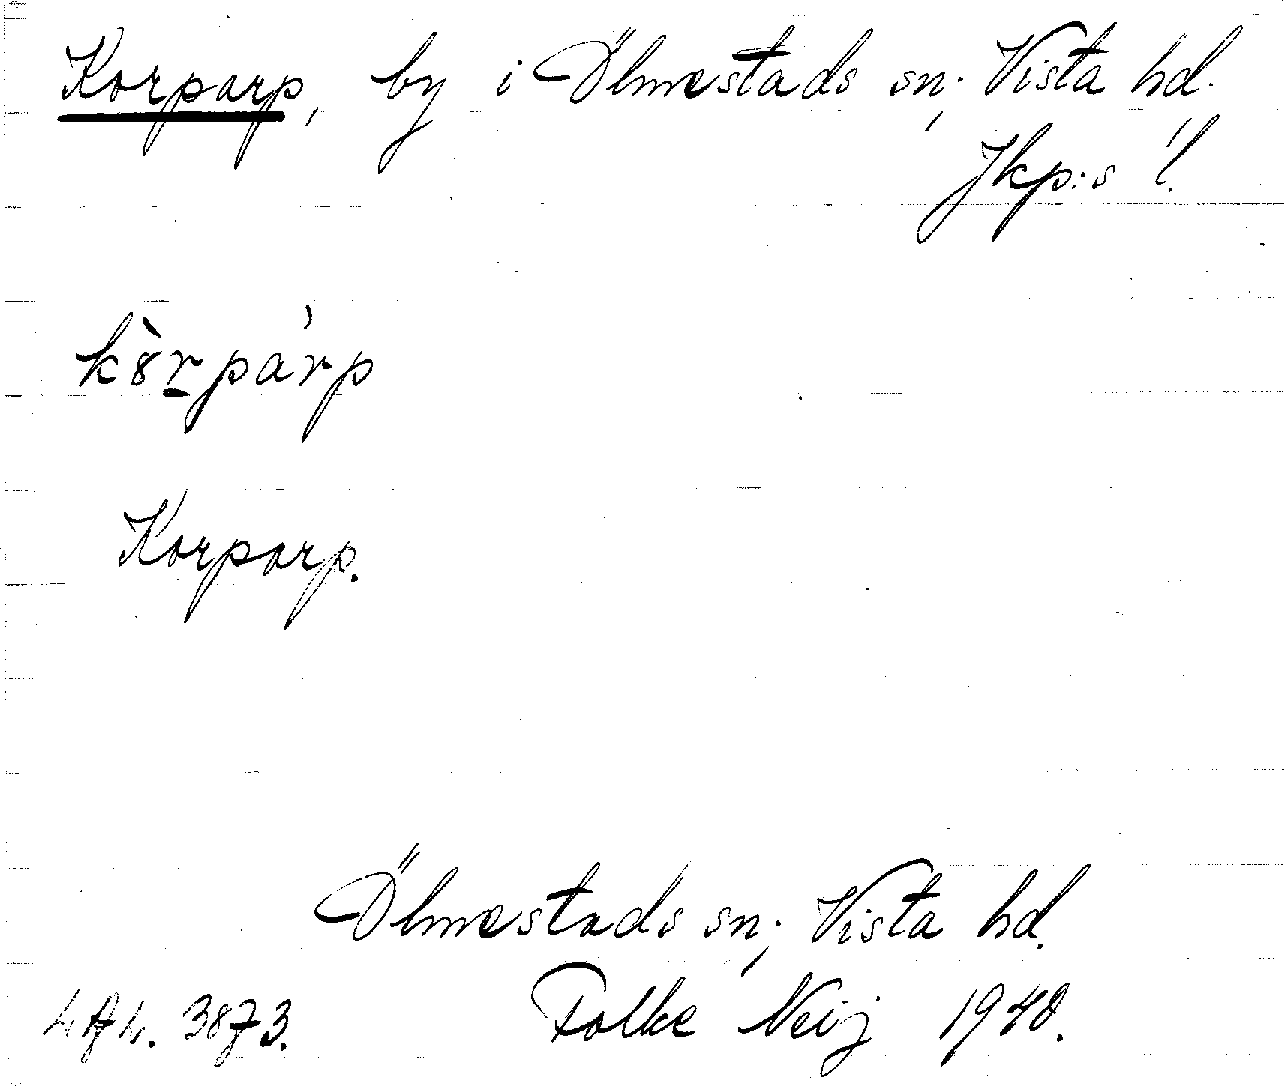 Korparp, by i Ölmestads sn; Vista hd.
Jkp:s l.
Korparp.
Ölmestads sn; Vista hd.
Folke Neij 1940.
3873.